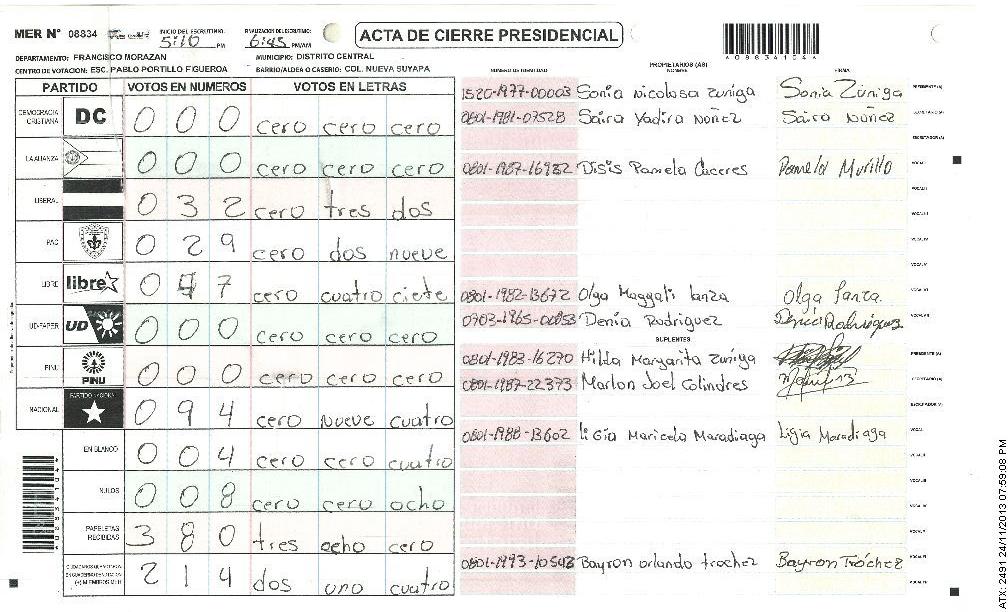 MER Nº 08834
INICIO DEL ESCRUTINIO: 5:10 PM
FINALIZACION DEL ESCRUTINIO: 6:45 PM/AM
ACTA DE CIERRE PRESIDENCIAL
DEPARTAMENTO: FRANCISCO MORAZAN
MUNICIPIO: DISTRITO CENTRAL
CENTRO DE VOTACION: ESC. PABLO PORTILLO FIGUEROA
BARRIO/ALDEA O CASERIO: COL. NUEVA SUYAPA
PARTIDO VOTOS EN NUMEROS VOTOS EN LETRAS
DEMOCRACIA CRISTIANA DC 0 0 0 cero cero cero
LA ALIANZA 0 0 0 cero cero cero
LIBERAL 0 3 2 cero tres dos
PAC 0 2 9 cero dos nueve
LIBRE libre 0 4 7 cero cuatro ciete
UD-FAPER UD 0 0 0 cero cero cero
PINU PINU 0 0 0 cero cero cero
NACIONAL PARTIDO NACIONAL 0 9 4 cero nueve cuatro
EN BLANCO 0 0 4 cero cero cuatro
NULOS 0 0 8 cero cero ocho
PAPELETAS RECIBIDAS 3 8 0 tres ocho cero
2 1 4 dos uno cuatro
NUMERO DE IDENTIDAD PROPIETARIOS (AS) NOMBRE FIRMA
1520-1977-00003 Sonia Nicolasa Zuniga Sonia Zúniga PRESIDENTE (A)
0801-1981-07528 Saira Yadira Nuñez Saira Nuñez SECRETARIO (A)
ESCRUTADOR (A)
0801-1987-16982 Disis Pamela Caceres Pamela Murillo VOCAL I
VOCAL II
VOCAL III
VOCAL IV
VOCAL V
0801-1982-13672 Olga Maggali Lanza Olga Lanza VOCAL VI
0703-1965-00053 Denia Rodriguez Denia Rodriguez VOCAL VII
SUPLENTES
0801-1983-16270 Hilda Margarita Zuniga PRESIDENTE (A)
0801-1987-22373 Marlon Joel Colindres SECRETARIO (A)
ESCRUTADOR (A)
0801-1988-13602 Ligia Maricela Maradiaga Ligia Maradiaga VOCAL I
0801-1993-10543 Bayron orlando trochez Bayron Tróchez
ATX: 2491 24/11/2013 07:59:08 PM